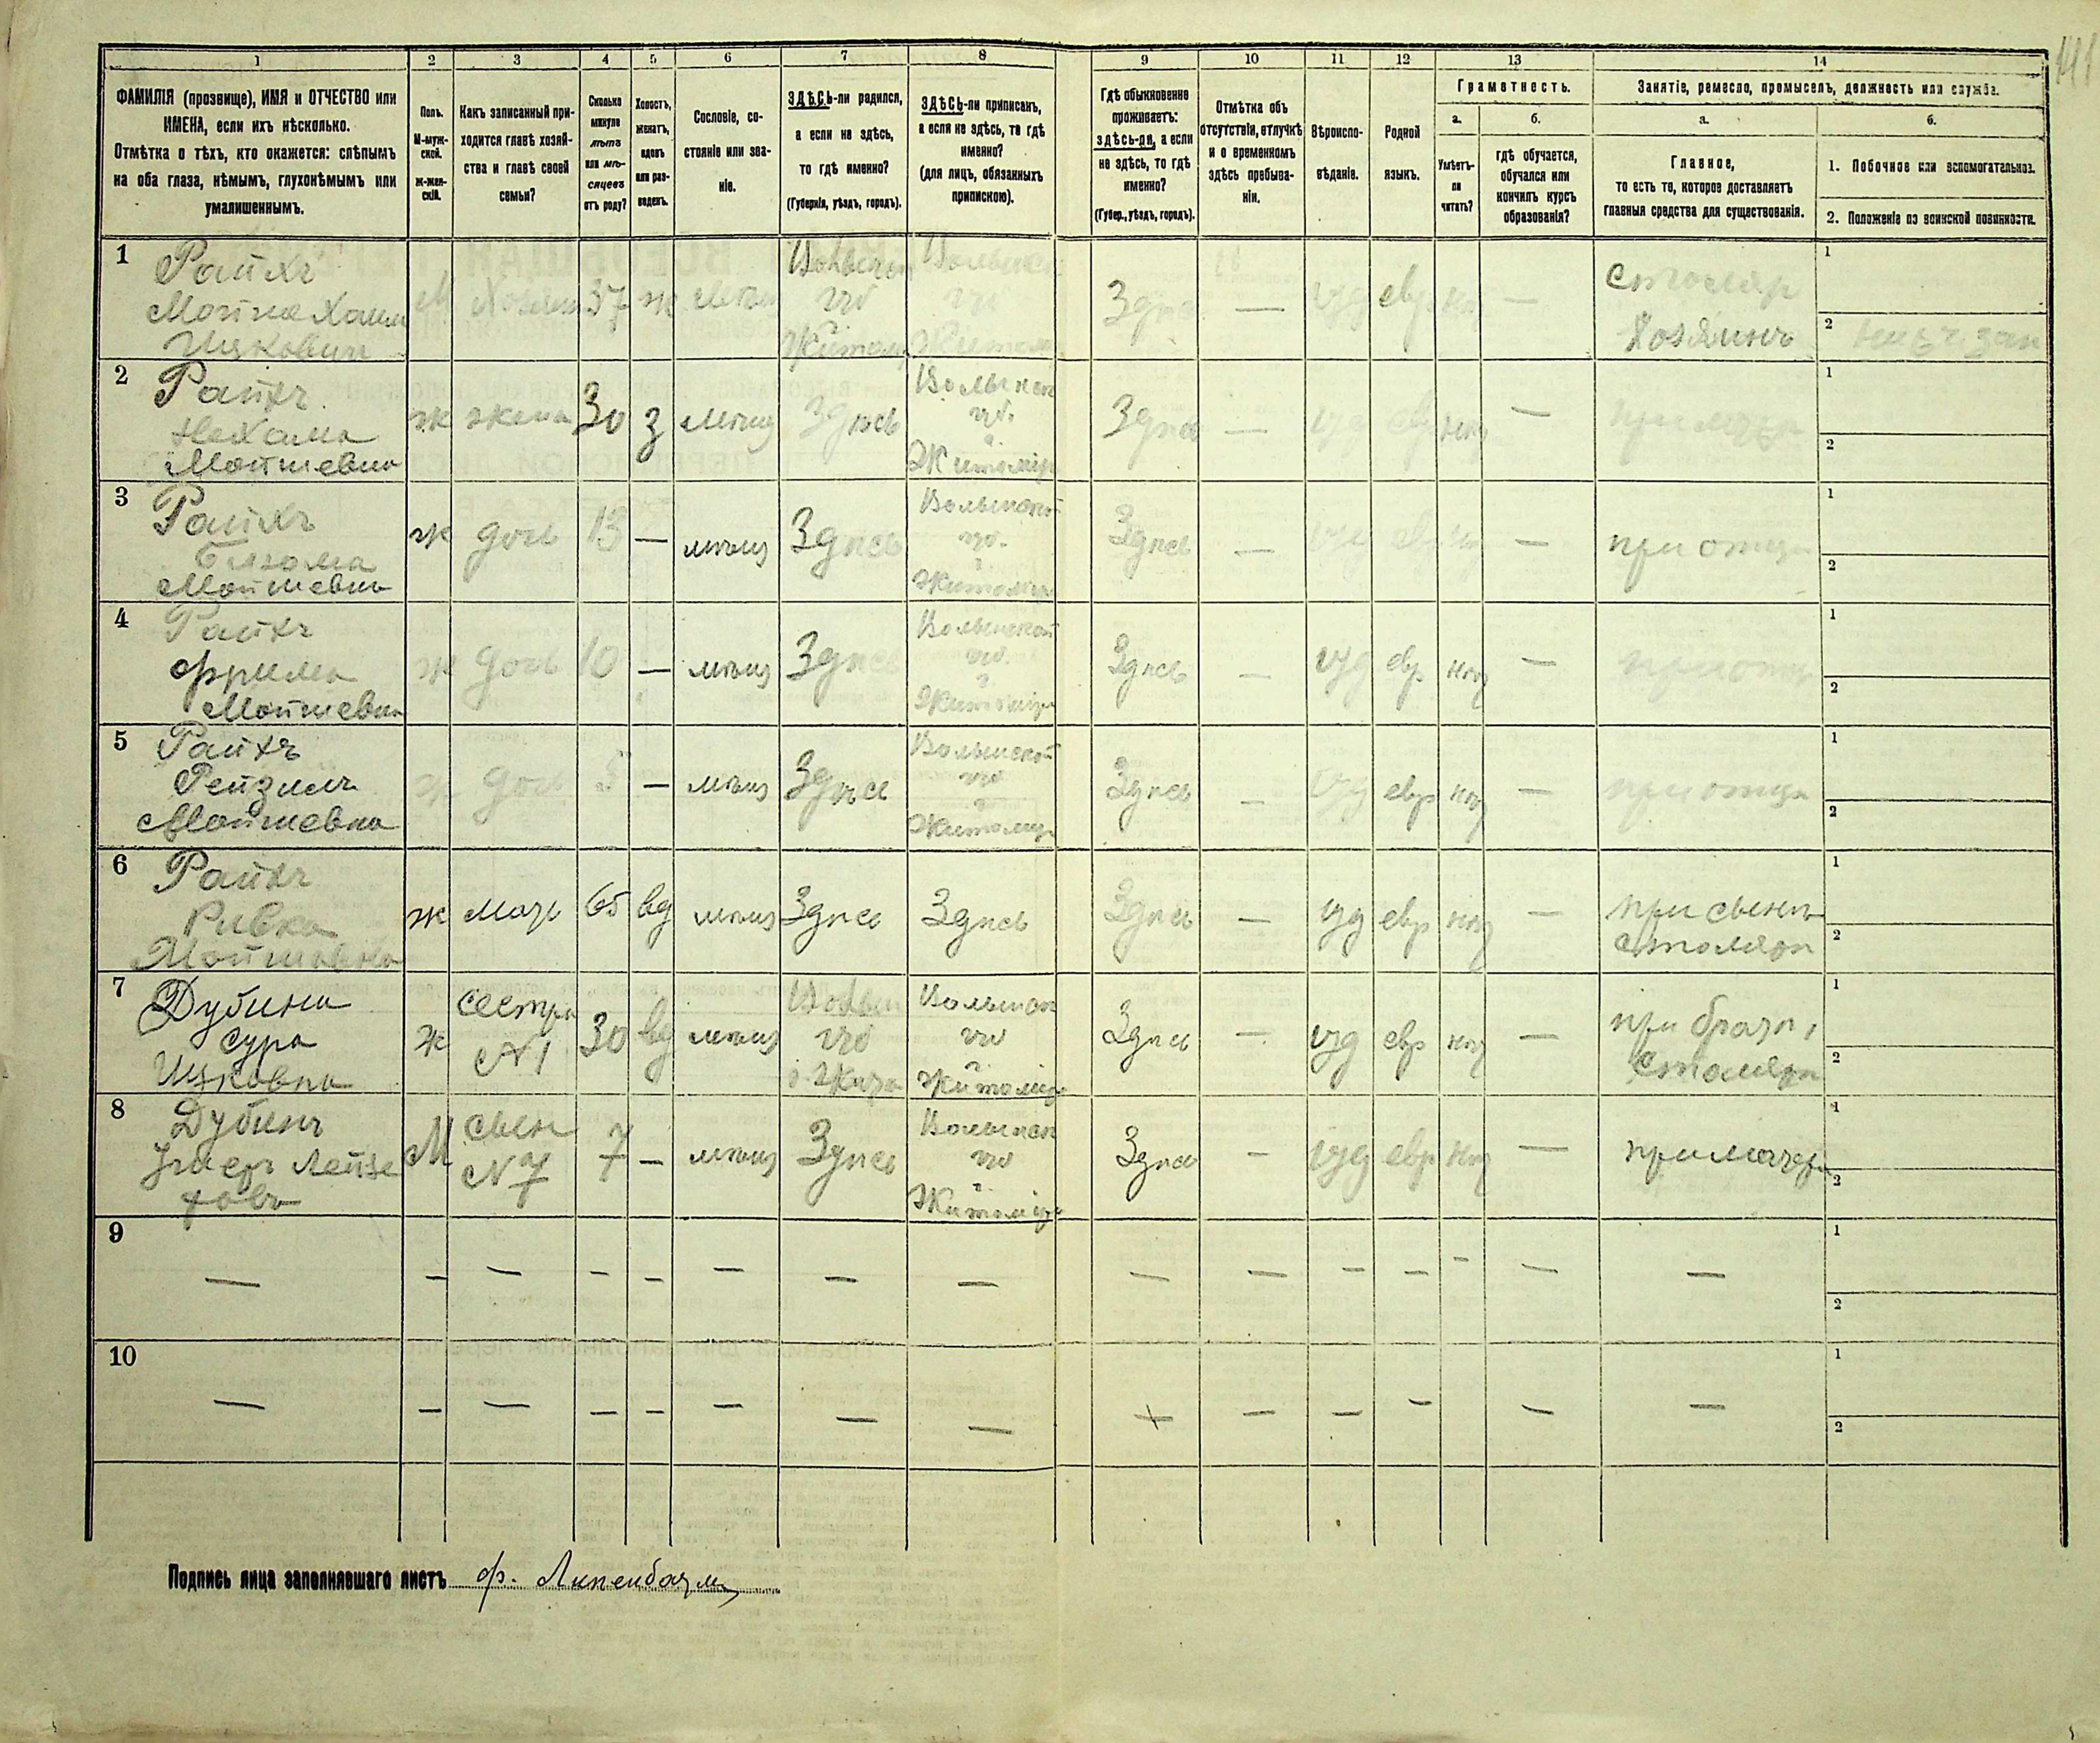 141
1 2 3 4 5 6 7 8 9 10 11 12 13 14
ФАМИЛІЯ (прозвище), ИМЯ и ОТЧЕСТВО или
ИМЕНА, если ихъ нѣсколько.
Отмѣтка о тѣхъ, кто окажется: слѣпымъ
на оба глаза, нѣмымъ, глухонѣмымъ или
умалишеннымъ.
Полъ.
М-муж-
ской.
ж-жен-
скій.
Какъ записанный при-
ходится главѣ хозяй-
ства и главѣ своей
семьи?
Сколько
минуло
лѣтъ
или мѣ-
сяцевъ
отъ роду?
Холостъ,
женатъ,
вдовъ
или раз-
веденъ.
Сословіе, со-
стояніе или зва-
ніе.
ЗДѢСЬ-ли родился,
а если не здѣсь,
то гдѣ именно?
(Губернія, уѣздъ, городъ).
ЗДѢСЬ-ли приписанъ,
а если не здѣсь, то гдѣ
именно?
(для лицъ, обязанныхъ
припискою).
Гдѣ обыкновенно
проживаетъ:
здѣсь-ли, а если
не здѣсь, то гдѣ
именно?
(Губер., уѣздъ, городъ).
Отмѣтка объ
отсутствіи, отлучкѣ
и о временномъ
здѣсь пребыва-
ніи.
Вѣроиспо-
вѣданіе.
Родной
языкъ.
Грамотность.
а.
Умѣетъ-
ли
читать?
б.
гдѣ обучается,
обучался или
кончилъ курсъ
образованія?
Занятіе, ремесло, промыселъ, должность или служба.
а.
Главное,
то есть то, которое доставляетъ
главныя средства для существованія.
б.
1. Побочное или вспомогательное.
2. Положеніе по воинской повинности.
1 Райхъ
Мошка Хаим
Ицковичъ
М Хозяин 37 ж мѣщ
Волынск
губ
Житомир
Волынск
губ
Житомир
Здѣсь — іуд евр нѣт —
столяр
Хозяинъ
1
2
2 Райхъ
Нехама
Мошиевна
ж жена 30 з мѣщ Здѣсь
Волынск
губ.
г.
Житомір
Здѣсь — іуд евр нѣт — при мужѣ
1
2
3 Райхъ
Мошиевна
ж дочь 13 — мѣщ Здѣсь
Волынской
губ.
г.
Житомир
Здѣсь — іуд евр нѣт — при отцѣ
1
2
4 Райхъ
Фрима
Мошиевна
ж дочь 10 — мѣщ Здѣсь
Волынской
губ.
г.
Житомір
Здѣсь — іуд евр нѣт — при отцѣ
1
2
5 Райхъ
Рейзиль
Мошиевна
ж дочь 5 — мѣщ Здѣсь
Волынской
губ
г.
Житомир
Здѣсь — іуд евр нѣт — при отцѣ
1
2
6 Райхъ
Ривка
ж мать 65 вд мѣщ Здѣсь Здѣсь
Здѣсь — іуд евр нѣт —
при сынѣ
столяръ
1
2
7 Дубина
Сура
Ицковна
ж
сестра
N 1
30 вд мѣщ
Волын
губ
Волынск
губ
г.
Житомір
Здѣсь — іуд евр нѣт —
при братѣ,
столяръ
1
2
8 Дубинъ
М
сын
N 7
7 — мѣщ Здѣсь
Волынск
губ
г.
Житомір
Здѣсь — іуд евр нѣт — при матери
1
2
9 — — — — — — — — — — — — — — —
1
2
10 — — — — — — — — + — — — — —
1
2
Подпись лица заполнявшаго листъ Ф. Липенбаум